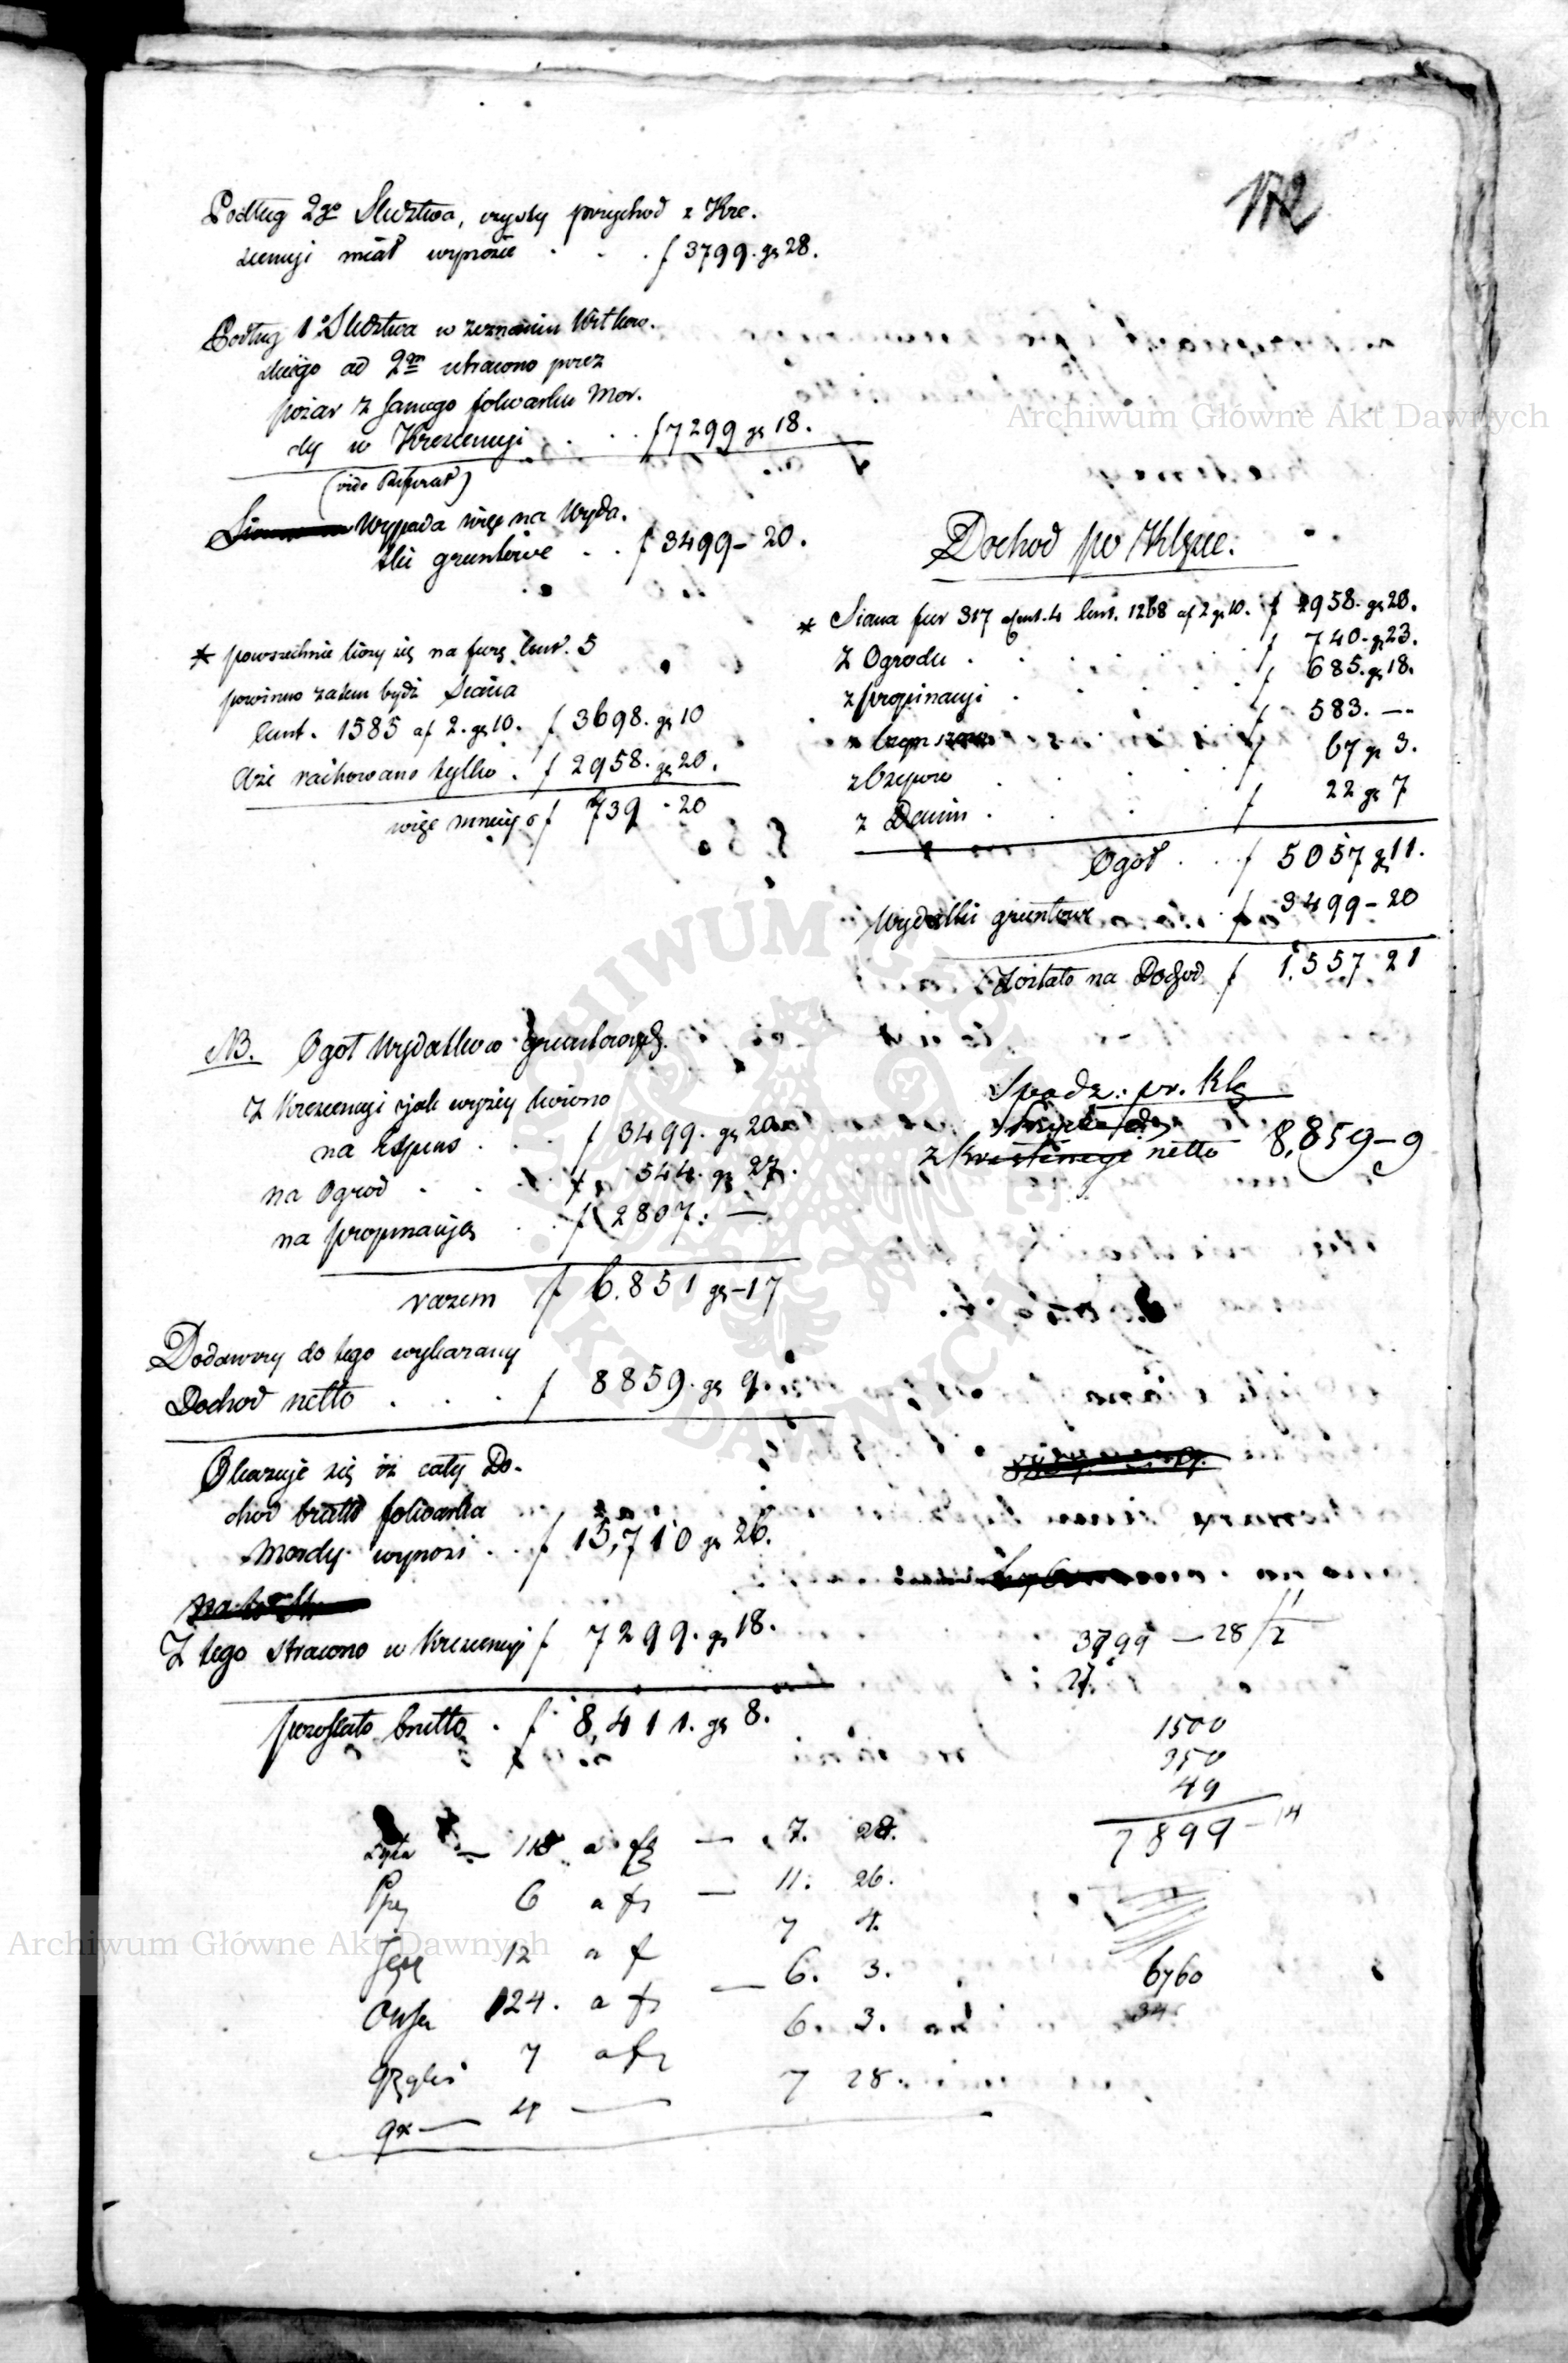 172
Podług 2go Sledztwa, czysty przychod z Kre-
scencyi miał wynosic . . . f 3799. gr 28.
Podług 1o Sledztwa w zeznaniu Witkow-
skiego ad 2um utracono przez
pożar z samego folwarku Mor-
dy w Krescencyi . . . f 7299 gr 18.
(vide Referat)
Wypada więc na Wyda-
tki gruntowe . . f 3499 - 20.
* powszechnie liczy się na furę Cent. 5
powinno zatem bydź Siana
Cent. 1585 af 2. gr 10. f 3698. gr 10
Dziś rachowano tylko . f 2958. gr 20.
więc mniej o f 739 - 20
Dochod po Klęsce.
* Siana fur 317 a Cent. 4 Cent. 1268 af 2 gr 10. f 2958. gr 20.
z Ogrodu . . . . . f 740. gr 23.
z propinacyi . . . . f 685. gr 18.
z . . . . f 583. —
z . . . . f 67 gr 3.
z Danin . . . . f 22 gr 7
Ogół . . . f 5057 gr 11.
Wydatki gruntowe . f 3499 - 20
Zostało na Dochod f 1,557 21
NB. Ogół Wydatkow gruntowych.
Z Krescencyi jak wyżey
na . . . f 3499. gr 20
na Ogrod . . . f 544. gr 27.
na propinacyą . . f 2807. —
razem f 6.851 gr - 17
Dodawszy do tego wykazany
Dochod netto . . . f 8859. gr 9
Okazuje się iż cały Do-
chod brutto folwarku
Mordy wynosi . . f 15,710 gr 26.
Z tego stracono w Krescencyi f 7299. gr 18.
pozostało brutto . f 8,411. gr 8.
netto 8,859 - 9
3799 — 28
1500
350
49
7899 - 14
6760
34
Żyta — 118 a f — 7. 28.
6 a f — 11. 26.
12 a f 7 4.
Owsa 124. a f — 6. 3.
7 a f 6. 3.
4 — 7 28.
Archiwum Główne Akt Dawnych
Archiwum Główne Akt Dawnych
ARCHIWUM GŁÓWNE AKT DAWNYCH